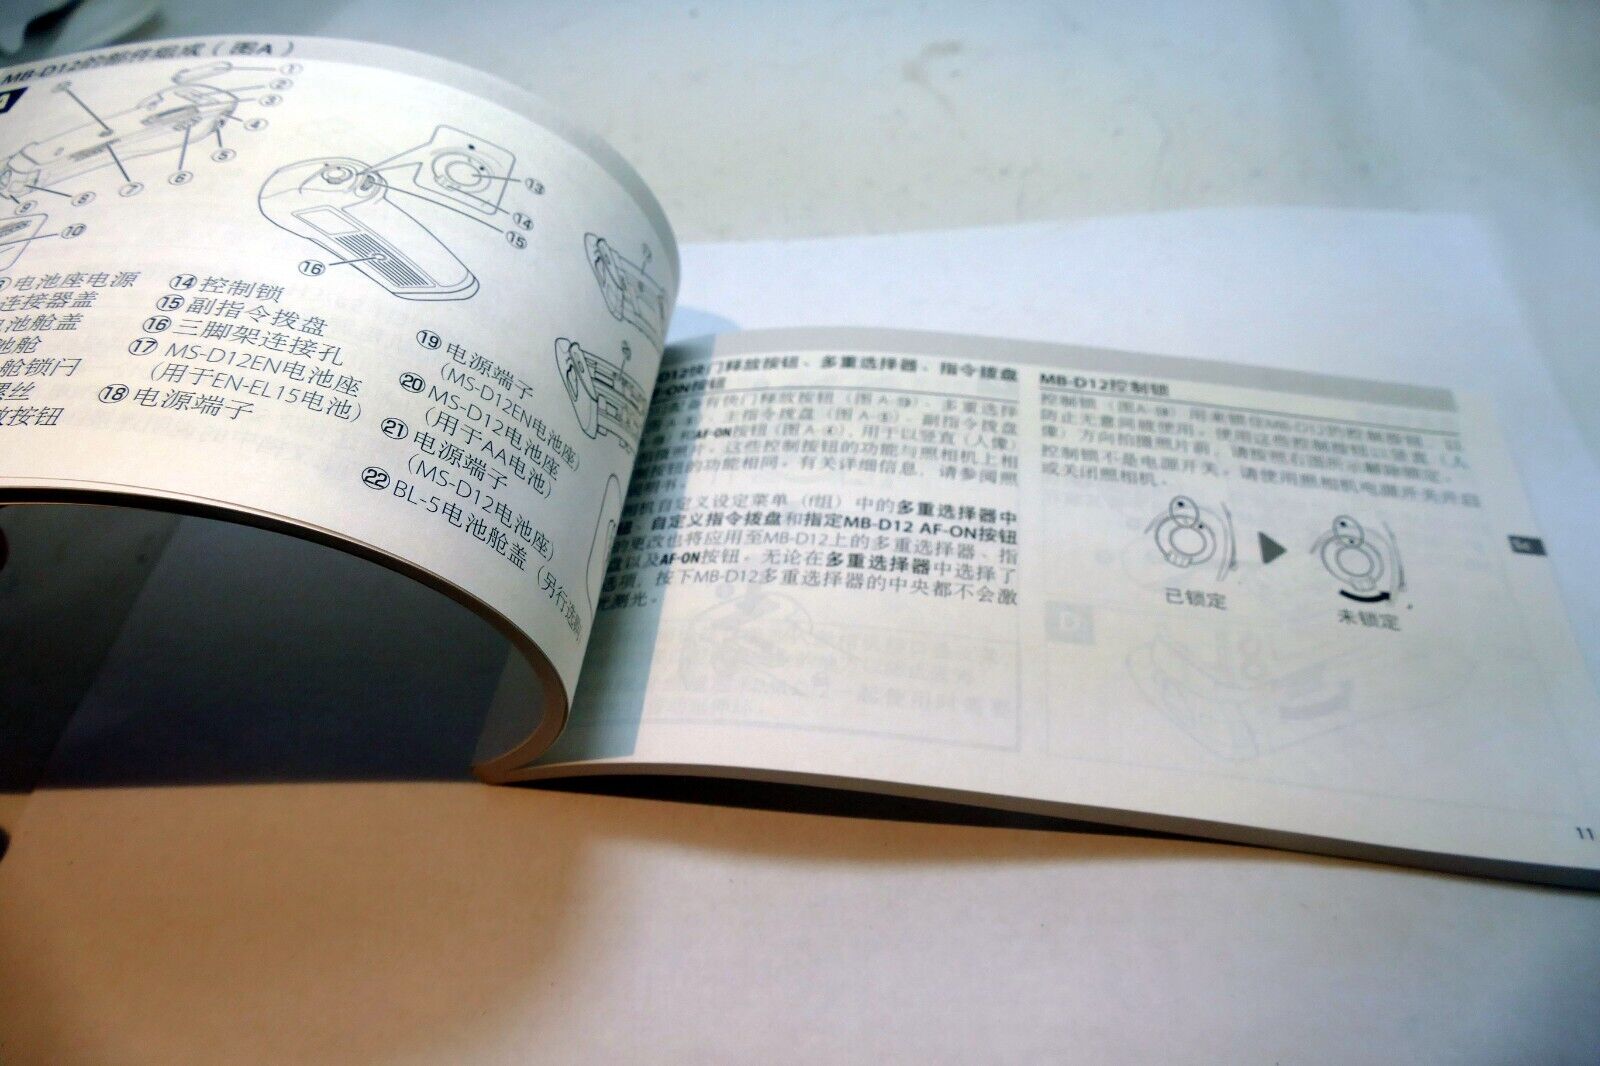 MB-D12的部件组成（图A）
A
①
②
③
④
⑤
⑥
⑦
⑧
⑨
⑩
⑬
⑭
⑮
⑯
电池座电源
连接器盖
池舱盖
池舱
舱锁闩
螺丝
放按钮
⑭ 控制锁
⑮ 副指令拨盘
⑯ 三脚架连接孔
⑰ MS-D12EN电池座
（用于EN-EL15电池）
⑱ 电源端子
⑲ 电源端子
（MS-D12EN电池座）
⑳ MS-D12电池座
（用于AA电池）
㉑ 电源端子
（MS-D12电池座）
㉒ BL-5电池舱盖（另行选购）
D12快门释放按钮、多重选择器、指令拨盘
F-ON按钮
有快门释放按钮（图A-⑬）、多重选择
、主指令拨盘（图A-⑤）、副指令拨盘
AF-ON按钮（图A-④），用于以竖直（人像）
照片。这些控制按钮的功能与照相机上相
按钮的功能相同。有关详细信息，请参阅照
明书。
相机自定义设定菜单（f组）中的多重选择器中
、自定义指令拨盘和指定MB-D12 AF-ON按钮
的更改也将应用至MB-D12上的多重选择器、指
盘以及AF-ON按钮。无论在多重选择器中选择了
选项，按下MB-D12多重选择器的中央都不会激
光测光。
MB-D12控制锁
控制锁（图A-⑭）用来锁住MB-D12的控制按钮，以
防止无意间被使用。使用这些控制按钮以竖直（人
像）方向拍摄照片前，请按照右图所示解除锁定。
控制锁不是电源开关。请使用照相机电源开关开启
或关闭照相机。
已锁定
未锁定
Sc
11